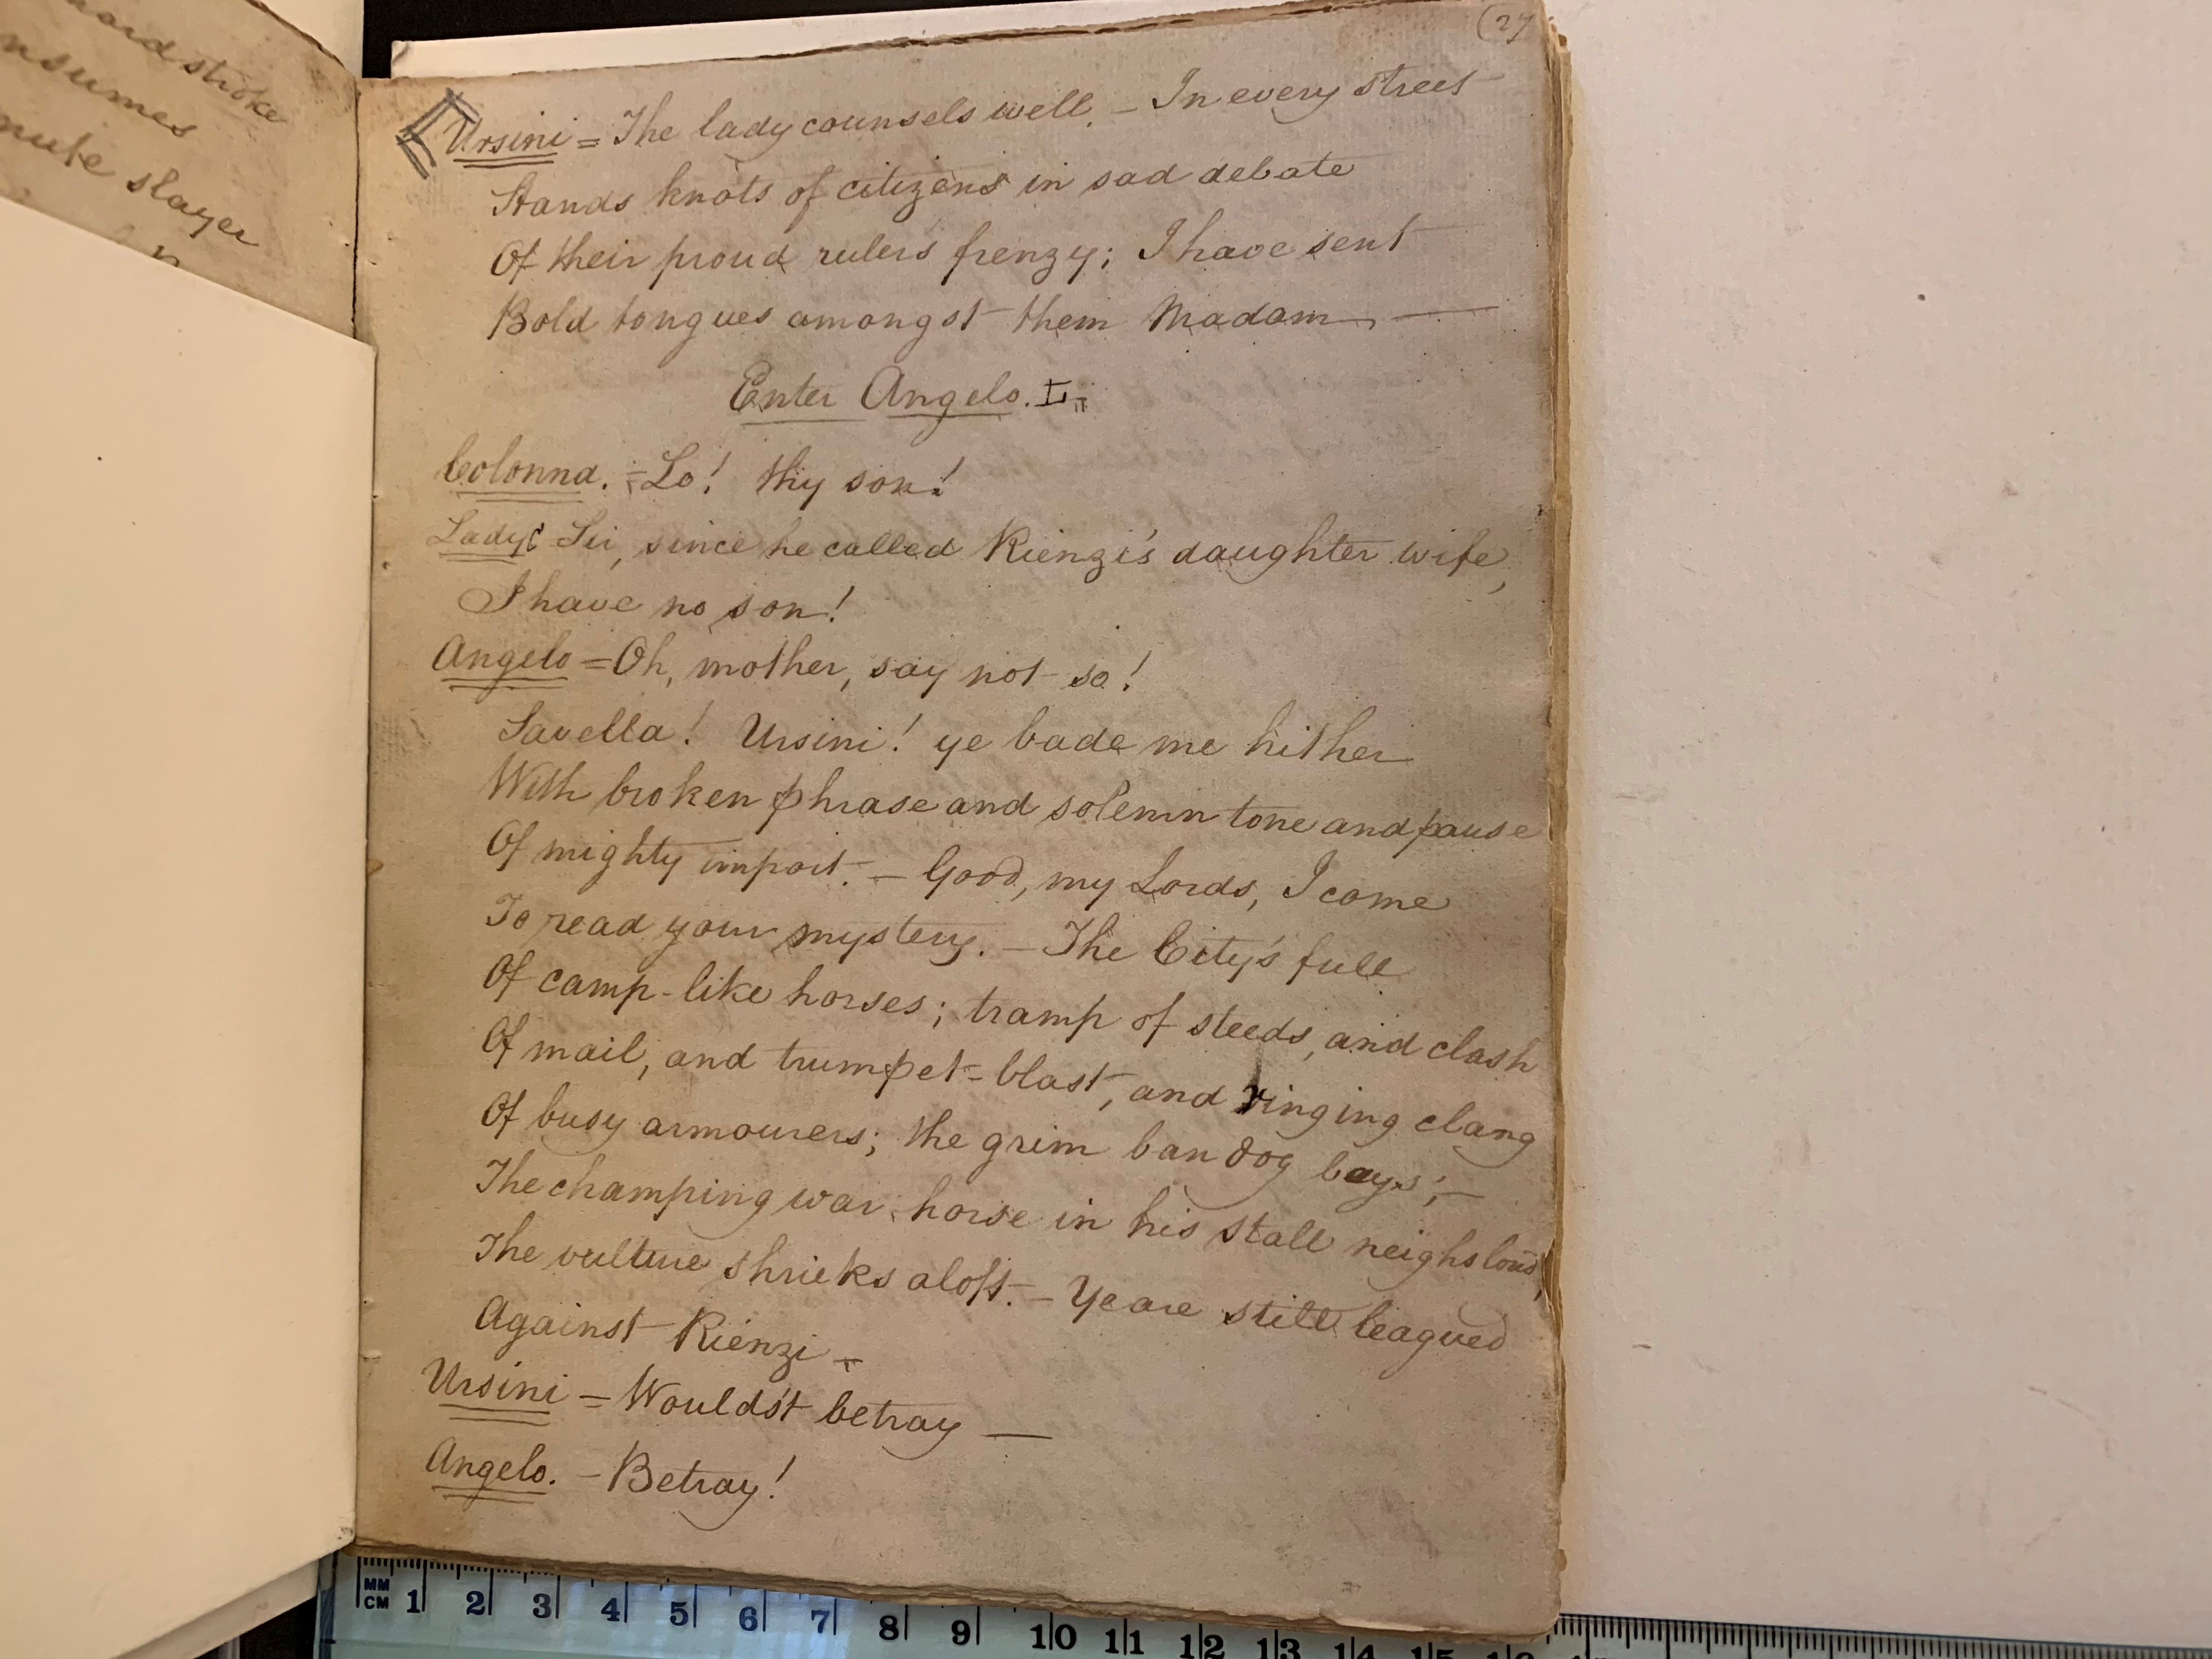 hand stroke
nsumes
mute slayer
(27
Ursini = The lady counsels well. – In every street
Stands knots of citizens in sad debate
Of their proud rulers frenzy; I have sent
Bold tongues amongst them Madam, —
Enter Angelo. L
Colonna. = Lo! thy son!
Lady C Sir, since he called Rienzi's daughter wife,
I have no son!
Angelo = Oh, mother, say not so!
Savella! Ursini! ye bade me hither
With broken phrase and solemn tone and pause
Of mighty import. – Good, my Lords, I come
To read your mystery. – The City's full
Of camp-like horses; tramp of steeds, and clash
Of mail, and trumpet-blast, and ringing clang
Of busy armourers; the grim ban dog bays; –
The champing war-horse in his stall neighs loud;
The vulture shrieks aloft. – Ye are still leagued
Against Rienzi –
Ursini = Would'st betray —
Angelo. – Betray!
MM
CM 1 2 3 4 5 6 7 8 9 10 11 12 13 14 15 16